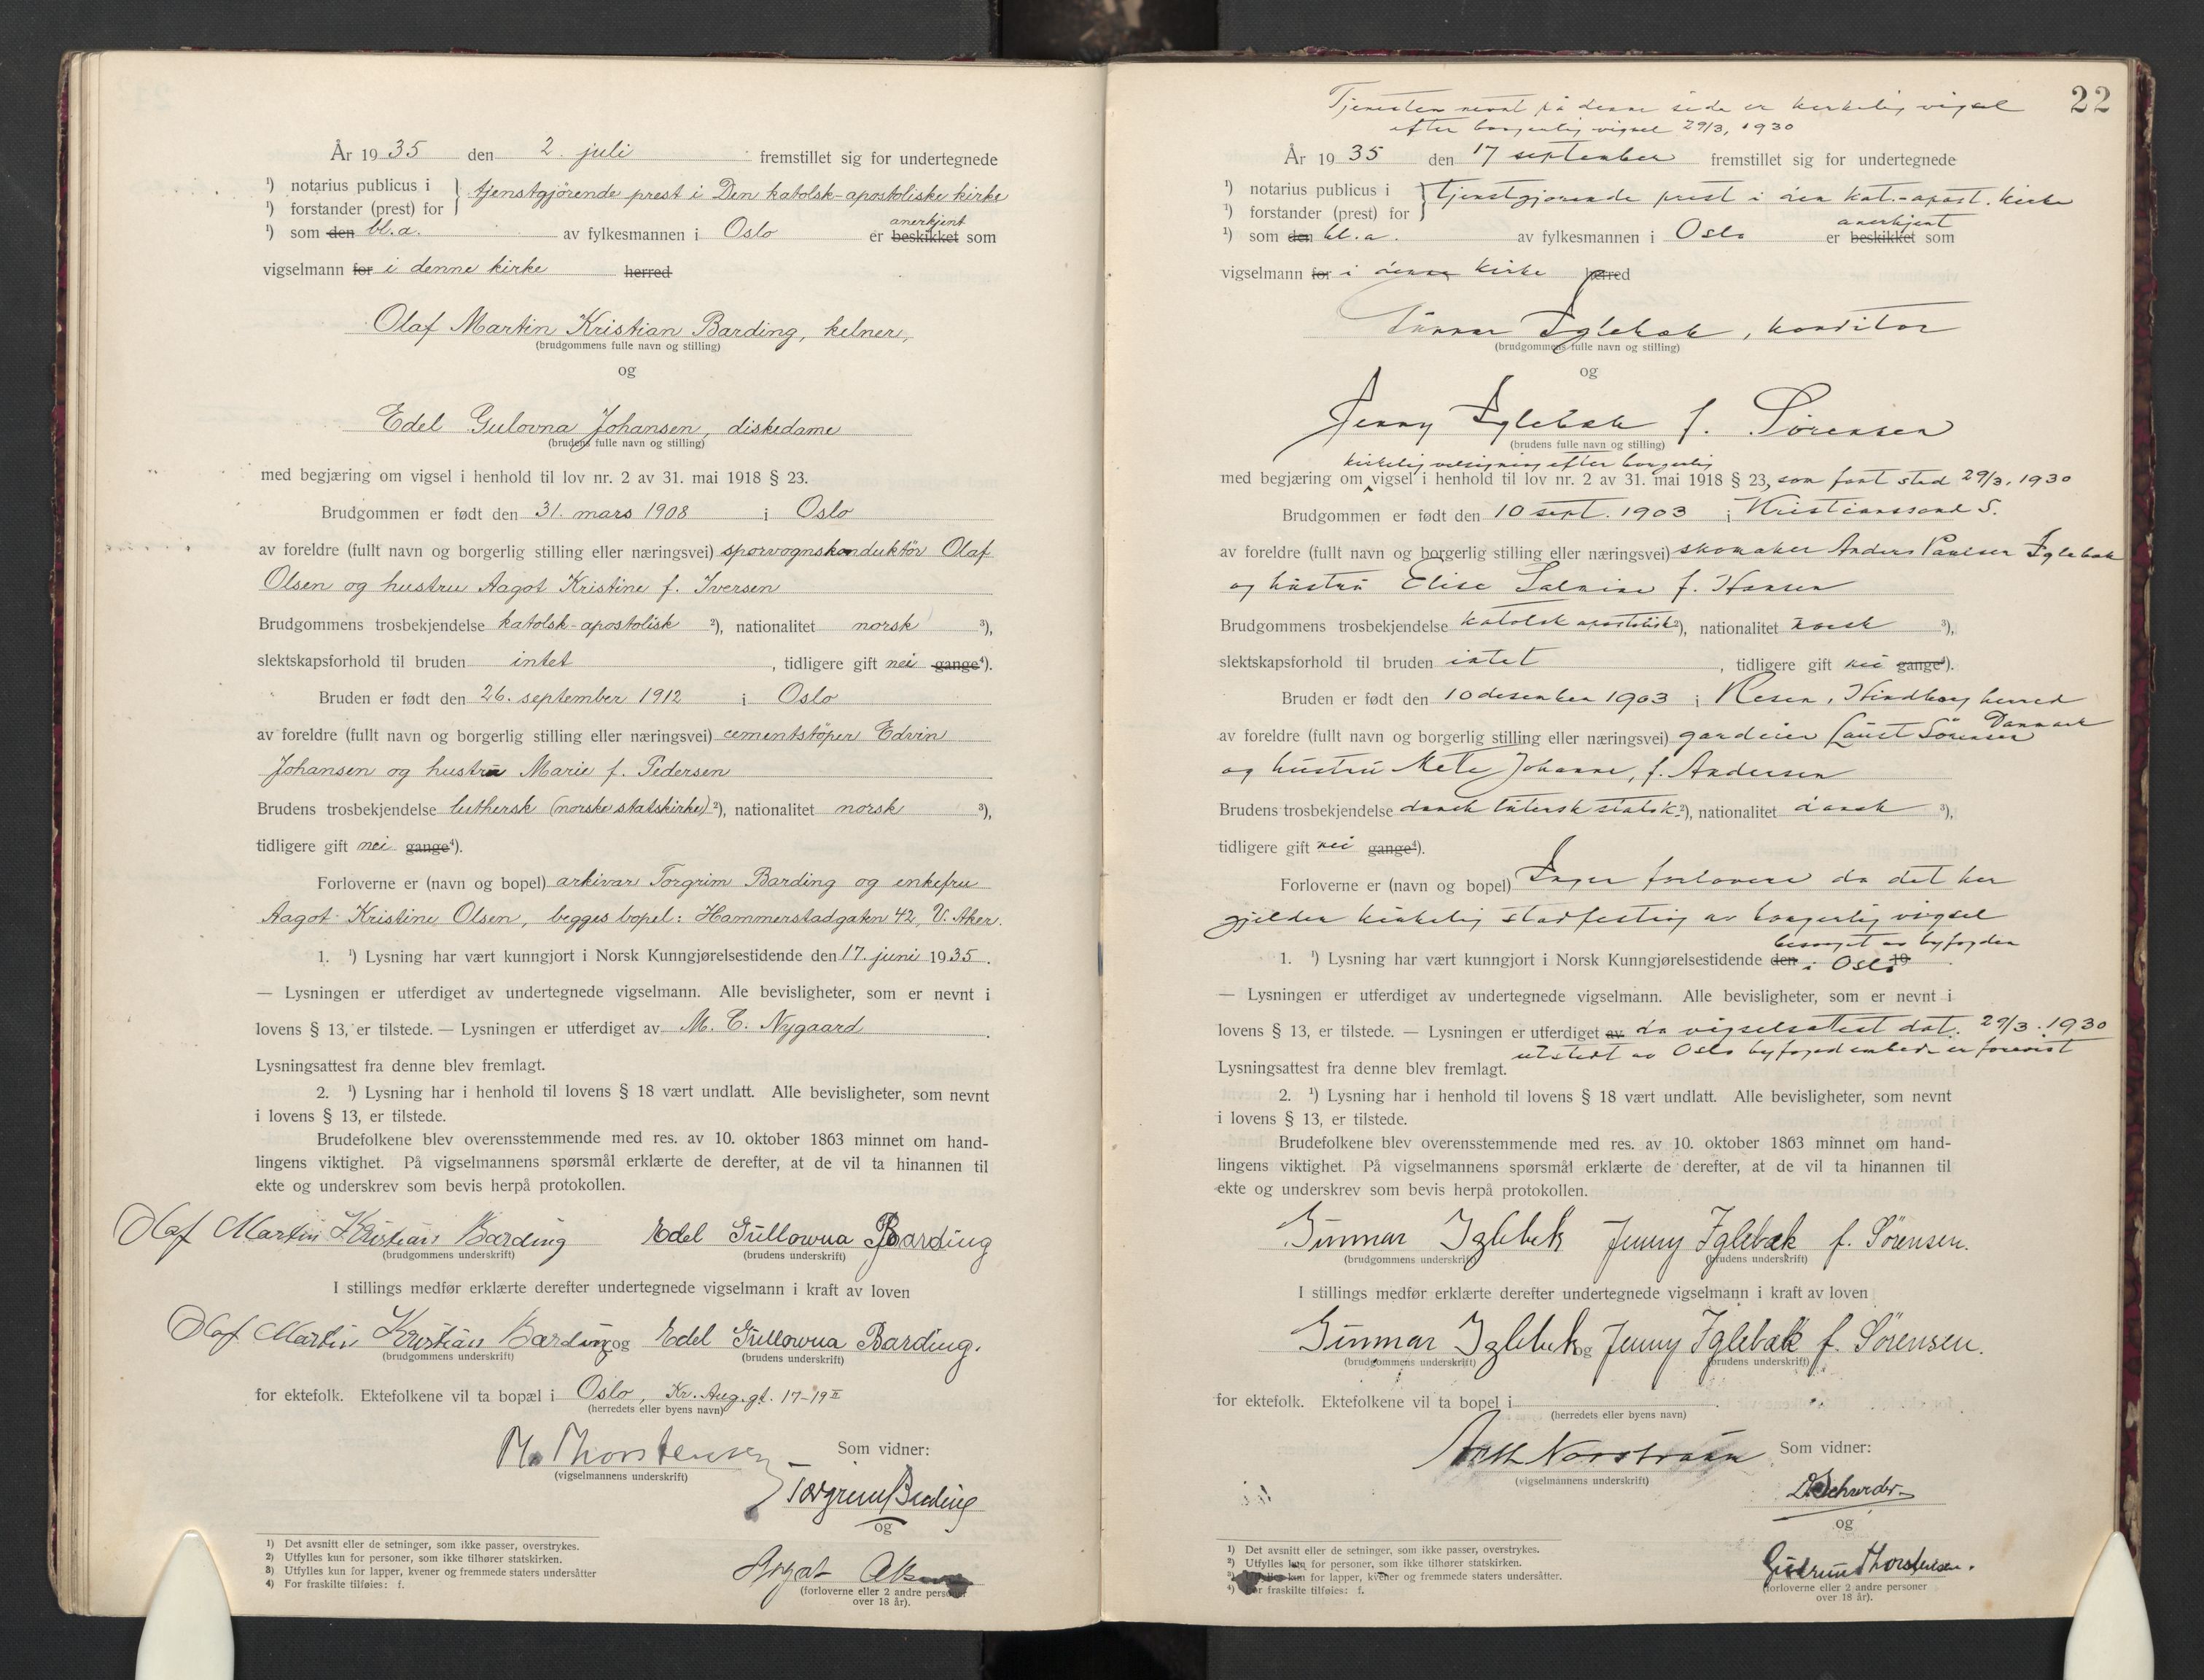 År 1935 den 2. juli fremstillet sig for undertegnede
¹) notarius publicus i
¹) forstander (prest) for } tjenstgjørende prest i Den katolsk-apostoliske kirke
anerkjent
¹) som den bl.a. av fylkesmannen i Oslo er beskikket som
vigselmann for i denne kirke herred
Olaf Martin Kristian Barding, kelner,
(brudgommens fulle navn og stilling)
og
Edel Gulovna Johansen, diskedame
(brudens fulle navn og stilling)
med begjæring om vigsel i henhold til lov nr. 2 av 31. mai 1918 § 23.
Brudgommen er født den 31. mars 1908 i Oslo
av foreldre (fullt navn og borgerlig stilling eller næringsvei) sporvognskonduktör Olaf
Olsen og hustru Aagot Kristine f. Iversen
Brudgommens trosbekjendelse katolsk-apostolisk ²), nationalitet norsk ³),
slektskapsforhold til bruden intet , tidligere gift nei gange⁴).
Bruden er født den 26. september 1912 i Oslo
av foreldre (fullt navn og borgerlig stilling eller næringsvei) cementstöper Edvin
Johansen og hustru Marie f. Pedersen
Brudens trosbekjendelse luthersk (norske statskirke) ²), nationalitet norsk ³),
tidligere gift nei gange⁴).
Forloverne er (navn og bopel) arkivar Torgrim Barding og enkefru
Aagot Kristine Olsen, begges bopel: Hammerstadgaten 42, V. Aker.
1. ¹) Lysning har vært kunngjort i Norsk Kunngjørelsestidende den 17. juni 1935.
— Lysningen er utferdiget av undertegnede vigselmann. Alle bevisligheter, som er nevnt i
lovens § 13, er tilstede. — Lysningen er utferdiget av M. C. Nygaard.
Lysningsattest fra denne blev fremlagt.
2. ¹) Lysning har i henhold til lovens § 18 vært undlatt. Alle bevisligheter, som nevnt
i lovens § 13, er tilstede.
Brudefolkene blev overensstemmende med res. av 10. oktober 1863 minnet om hand-
lingens viktighet. På vigselmannens spørsmål erklærte de derefter, at de vil ta hinannen til
ekte og underskrev som bevis herpå protokollen.
Olaf Martin Kristian Barding Edel Gullowna Barding
(brudgommens underskrift) (brudens underskrift)
I stillings medfør erklærte derefter undertegnede vigselmann i kraft av loven
Olaf Martin Kristian Barding og Edel Gullowna Barding.
(brudgommens underskrift) (brudens underskrift)
for ektefolk. Ektefolkene vil ta bopæl i Oslo, Kr. Aug. gt. 17-19 II
(herredets eller byens navn)
M. Thorstensen Som vidner:
(vigselmannens underskrift)
Torgrim Barding
og
Aagot
(forloverne eller 2 andre personer
over 18 år).
¹) Det avsnitt eller de setninger, som ikke passer, overstrykes.
²) Utfylles kun for personer, som ikke tilhører statskirken.
³) Utfylles kun for lapper, kvener og fremmede staters undersåtter
⁴) For fraskilte tilføies: f.
22
Tjenesten nevnt på denne side er kirkelig vigsel
efter borgerlig vigsel 29/3, 1930
År 1935 den 17 september fremstillet sig for undertegnede
¹) notarius publicus i
¹) forstander (prest) for } tjenstgjorende prest i den kat.-apost. kirke
anerkjent
¹) som den bl.a. av fylkesmannen i Oslo er beskikket som
vigselmann for i denne kirke herred
Gunnar Iglebæk, konditor
(brudgommens fulle navn og stilling)
og
Jenny Iglebæk f. Sörensen
(brudens fulle navn og stilling)
kirkelig velsigning efter borgerlig
med begjæring om vigsel i henhold til lov nr. 2 av 31. mai 1918 § 23, som fant sted 29/3. 1930
Brudgommen er født den 10 sept. 1903 i Kristianssand S.
av foreldre (fullt navn og borgerlig stilling eller næringsvei) skomaker Anders Paulsen Iglebæk
og hustru Elise Salmine f. Hansen
Brudgommens trosbekjendelse katolsk apostolisk ²), nationalitet norsk ³),
slektskapsforhold til bruden intet , tidligere gift nei gange⁴).
Bruden er født den 10 desember 1903 i Resen, Hindborg herred
Danmark
av foreldre (fullt navn og borgerlig stilling eller næringsvei) gardeier Laust Sörensen
og hustru Mete Johanne, f. Andersen
Brudens trosbekjendelse dansk lutersk statsk. ²), nationalitet dansk ³),
tidligere gift nei gange⁴).
Forloverne er (navn og bopel) Ingen forlovere da det her
gjelder kirkelig stadfesting av borgerlig vigsel
besörget av byfogden
1. ¹) Lysning har vært kunngjort i Norsk Kunngjørelsestidende den i Oslo 19
— Lysningen er utferdiget av undertegnede vigselmann. Alle bevisligheter, som er nevnt i
lovens § 13, er tilstede. — Lysningen er utferdiget av da vigselsattest dat. 29/3. 1930
utstedt av Oslo byfogedembede er forevist
Lysningsattest fra denne blev fremlagt.
2. ¹) Lysning har i henhold til lovens § 18 vært undlatt. Alle bevisligheter, som nevnt
i lovens § 13, er tilstede.
Brudefolkene blev overensstemmende med res. av 10. oktober 1863 minnet om hand-
lingens viktighet. På vigselmannens spørsmål erklærte de derefter, at de vil ta hinannen til
ekte og underskrev som bevis herpå protokollen.
Gunnar Iglebæk Jenny Iglebæk f. Sörensen.
(brudgommens underskrift) (brudens underskrift)
I stillings medfør erklærte derefter undertegnede vigselmann i kraft av loven
Gunnar Iglebæk og Jenny Iglebæk f. Sörensen.
(brudgommens underskrift) (brudens underskrift)
for ektefolk. Ektefolkene vil ta bopel i
(herredets eller byens navn)
Som vidner:
(vigselmannens underskrift)
og
Gudrun Thorstensen.
(forloverne eller 2 andre personer
over 18 år).
¹) Det avsnitt eller de setninger, som ikke passer, overstrykes.
²) Utfylles kun for personer, som ikke tilhører statskirken.
³) Utfylles kun for lapper, kvener og fremmede staters undersåtter.
⁴) For fraskilte tilføies: f.